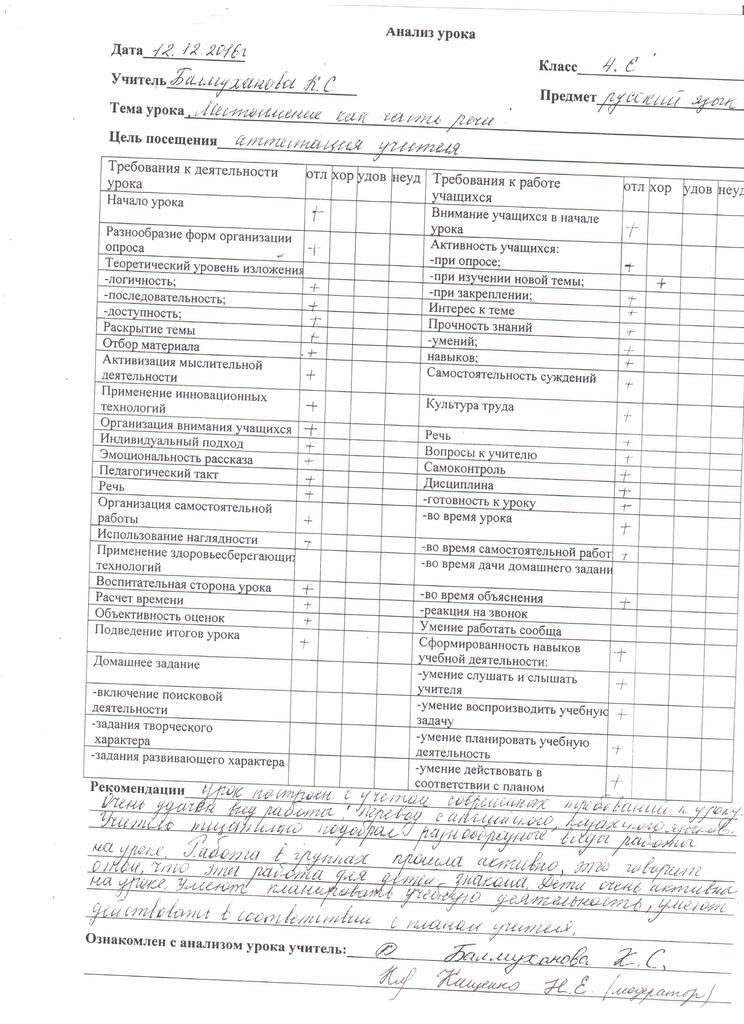 Анализ урока
Дата 12.12.2016г
Класс 4 "С"
Учитель Балмуханова К.С
Предмет русский язык
Тема урока Местоимение как часть речи
Цель посещения аттестация учителя
Требования к деятельности урока отл хор удов неуд Требования к работе учащихся отл хор удов неуд
Начало урока + Внимание учащихся в начале урока +
Разнообразие форм организации опроса + Активность учащихся:
-при опросе; +
Теоретический уровень изложения -при изучении новой темы; +
-логичность; + -при закреплении; +
-последовательность; + Интерес к теме +
-доступность; + Прочность знаний +
Раскрытие темы + -умений; +
Отбор материала + навыков; +
Активизация мыслительной деятельности + Самостоятельность суждений +
Применение инновационных технологий + Культура труда +
Организация внимания учащихся + Речь +
Индивидуальный подход + Вопросы к учителю +
Эмоциональность рассказа + Самоконтроль +
Педагогический такт + Дисциплина +
Речь + -готовность к уроку +
Организация самостоятельной работы + -во время урока +
Использование наглядности + -во время самостоятельной работ +
Применение здоровьесберегающих технологий -во время дачи домашнего задани
Воспитательная сторона урока + -во время объяснения +
Расчет времени + -реакция на звонок
Объективность оценок + Умение работать сообща
Подведение итогов урока + Сформированность навыков учебной деятельности: +
Домашнее задание -умение слушать и слышать учителя +
-включение поисковой деятельности -умение воспроизводить учебную задачу +
-задания творческого характера -умение планировать учебную деятельность +
-задания развивающего характера -умение действовать в соответствии с планом +
Рекомендации Урок построен с учетом современных требований к уроку.
Очень удачен вид работы: перевод с английского, казахского языков.
Учитель тщательно подобрал разнообразные виды работы
на уроке. Работа в группах прошла активно, это говорит
о том, что эта работа для детей знакома. Дети очень активны
на уроке. Умеют планировать учебную деятельность, умеют
действовать в соответствии с планом учителя.
Ознакомлен с анализом урока учитель: Балмуханова К.С.
Кищенко Н.Е. (модератор)